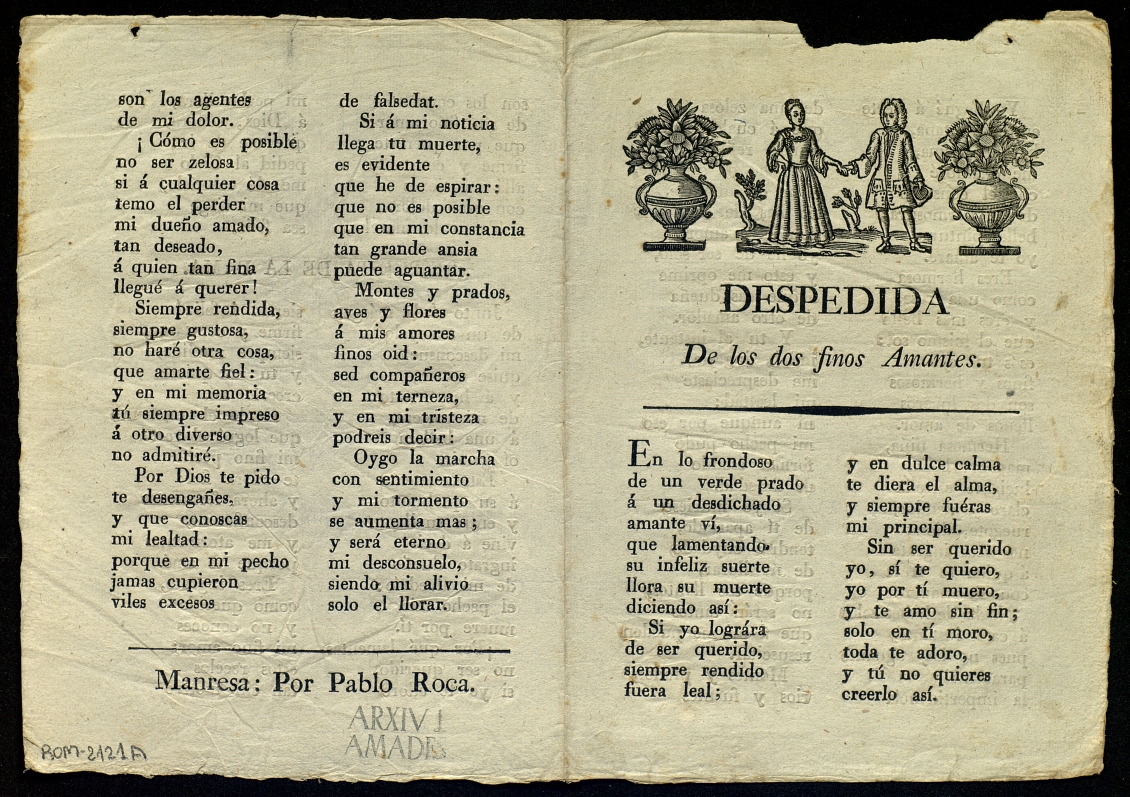 son los agentes
de mi dolor.
¡Cómo es posible
no ser zelosa
si á cualquier cosa
temo el perder
mi dueño amado,
tan deseado,
á quien tan fina
llegué á querer!
Siempre rendida,
siempre gustosa,
no haré otra cosa,
que amarte fiel:
y en mi memoria
tú siempre impreso
á otro diverso
no admitiré.
Por Dios te pido
te desengañes,
y que conoscas
mi lealtad:
porque en mi pecho
jamas cupieron
viles excesos
de falsedat.
Si á mi noticia
llega tu muerte,
es evidente
que he de espirar:
que no es posible
que en mi constancia
tan grande ansia
puede aguantar.
Montes y prados,
aves y flores
á mis amores
finos oid:
sed compañeros
en mi terneza,
y en mi tristeza
podreis decir:
Oygo la marcha
con sentimiento
y mi tormento
se aumenta mas;
y será eterno
mi desconsuelo,
siendo mi alivio
solo el llorar.
Manresa: Por Pablo Roca.
ARXIU
AMADES
BOM-2121A
DESPEDIDA
De los dos finos Amantes.
En lo frondoso
de un verde prado
á un desdichado
amante ví,
que lamentando
su infeliz suerte
llora su muerte
diciendo así:
Si yo lográra
de ser querido,
siempre rendido
fuera leal;
y en dulce calma
te diera el alma,
y siempre fuéras
mi principal.
Sin ser querido
yo, sí te quiero,
yo por tí muero,
y te amo sin fin;
solo en tí moro,
toda te adoro,
y tú no quieres
creerlo así.